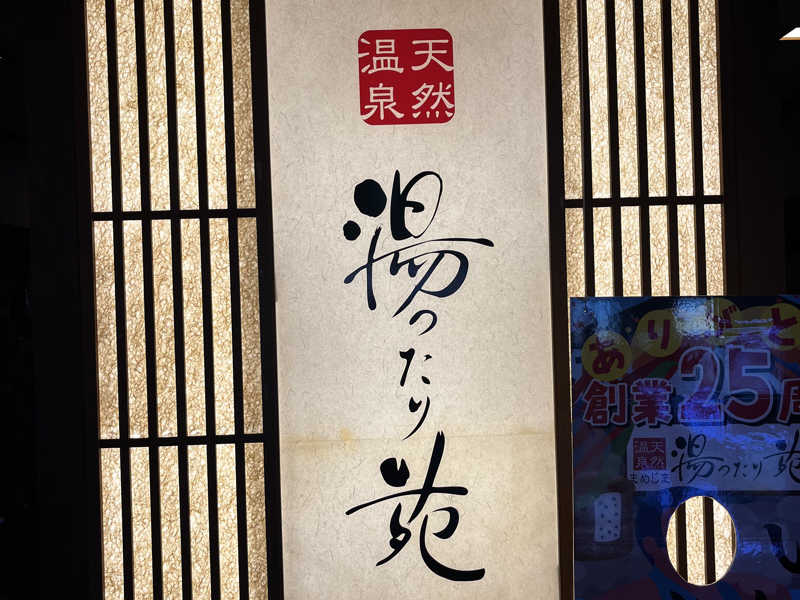 天然
温泉
湯ったり苑
ありがとう
創業25周
天然
温泉
まめじま
湯ったり苑